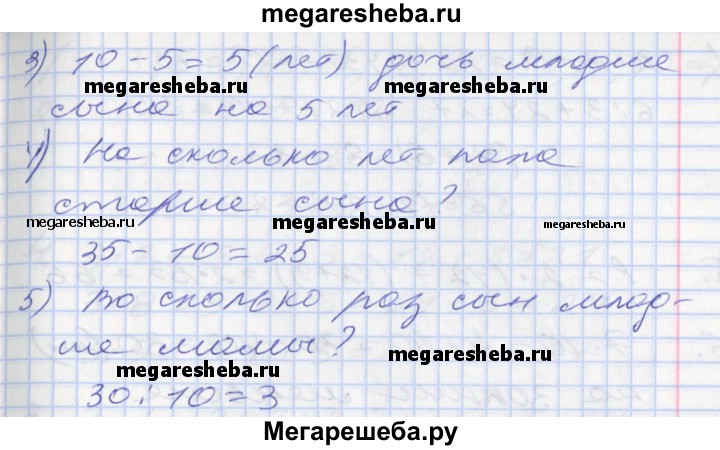 megaresheba.ru
3) 10 - 5 = 5 (лет) дочь младше
megaresheba.ru megaresheba.ru
сына на 5 лет
4) На сколько лет папа
старше сына?
megaresheba.ru megaresheba.ru megaresheba.ru
35 - 10 = 25
5) Во сколько раз сын млад-
ше мамы?
megaresheba.ru megaresheba.ru
30 : 10 = 3
Мегарешеба.ру